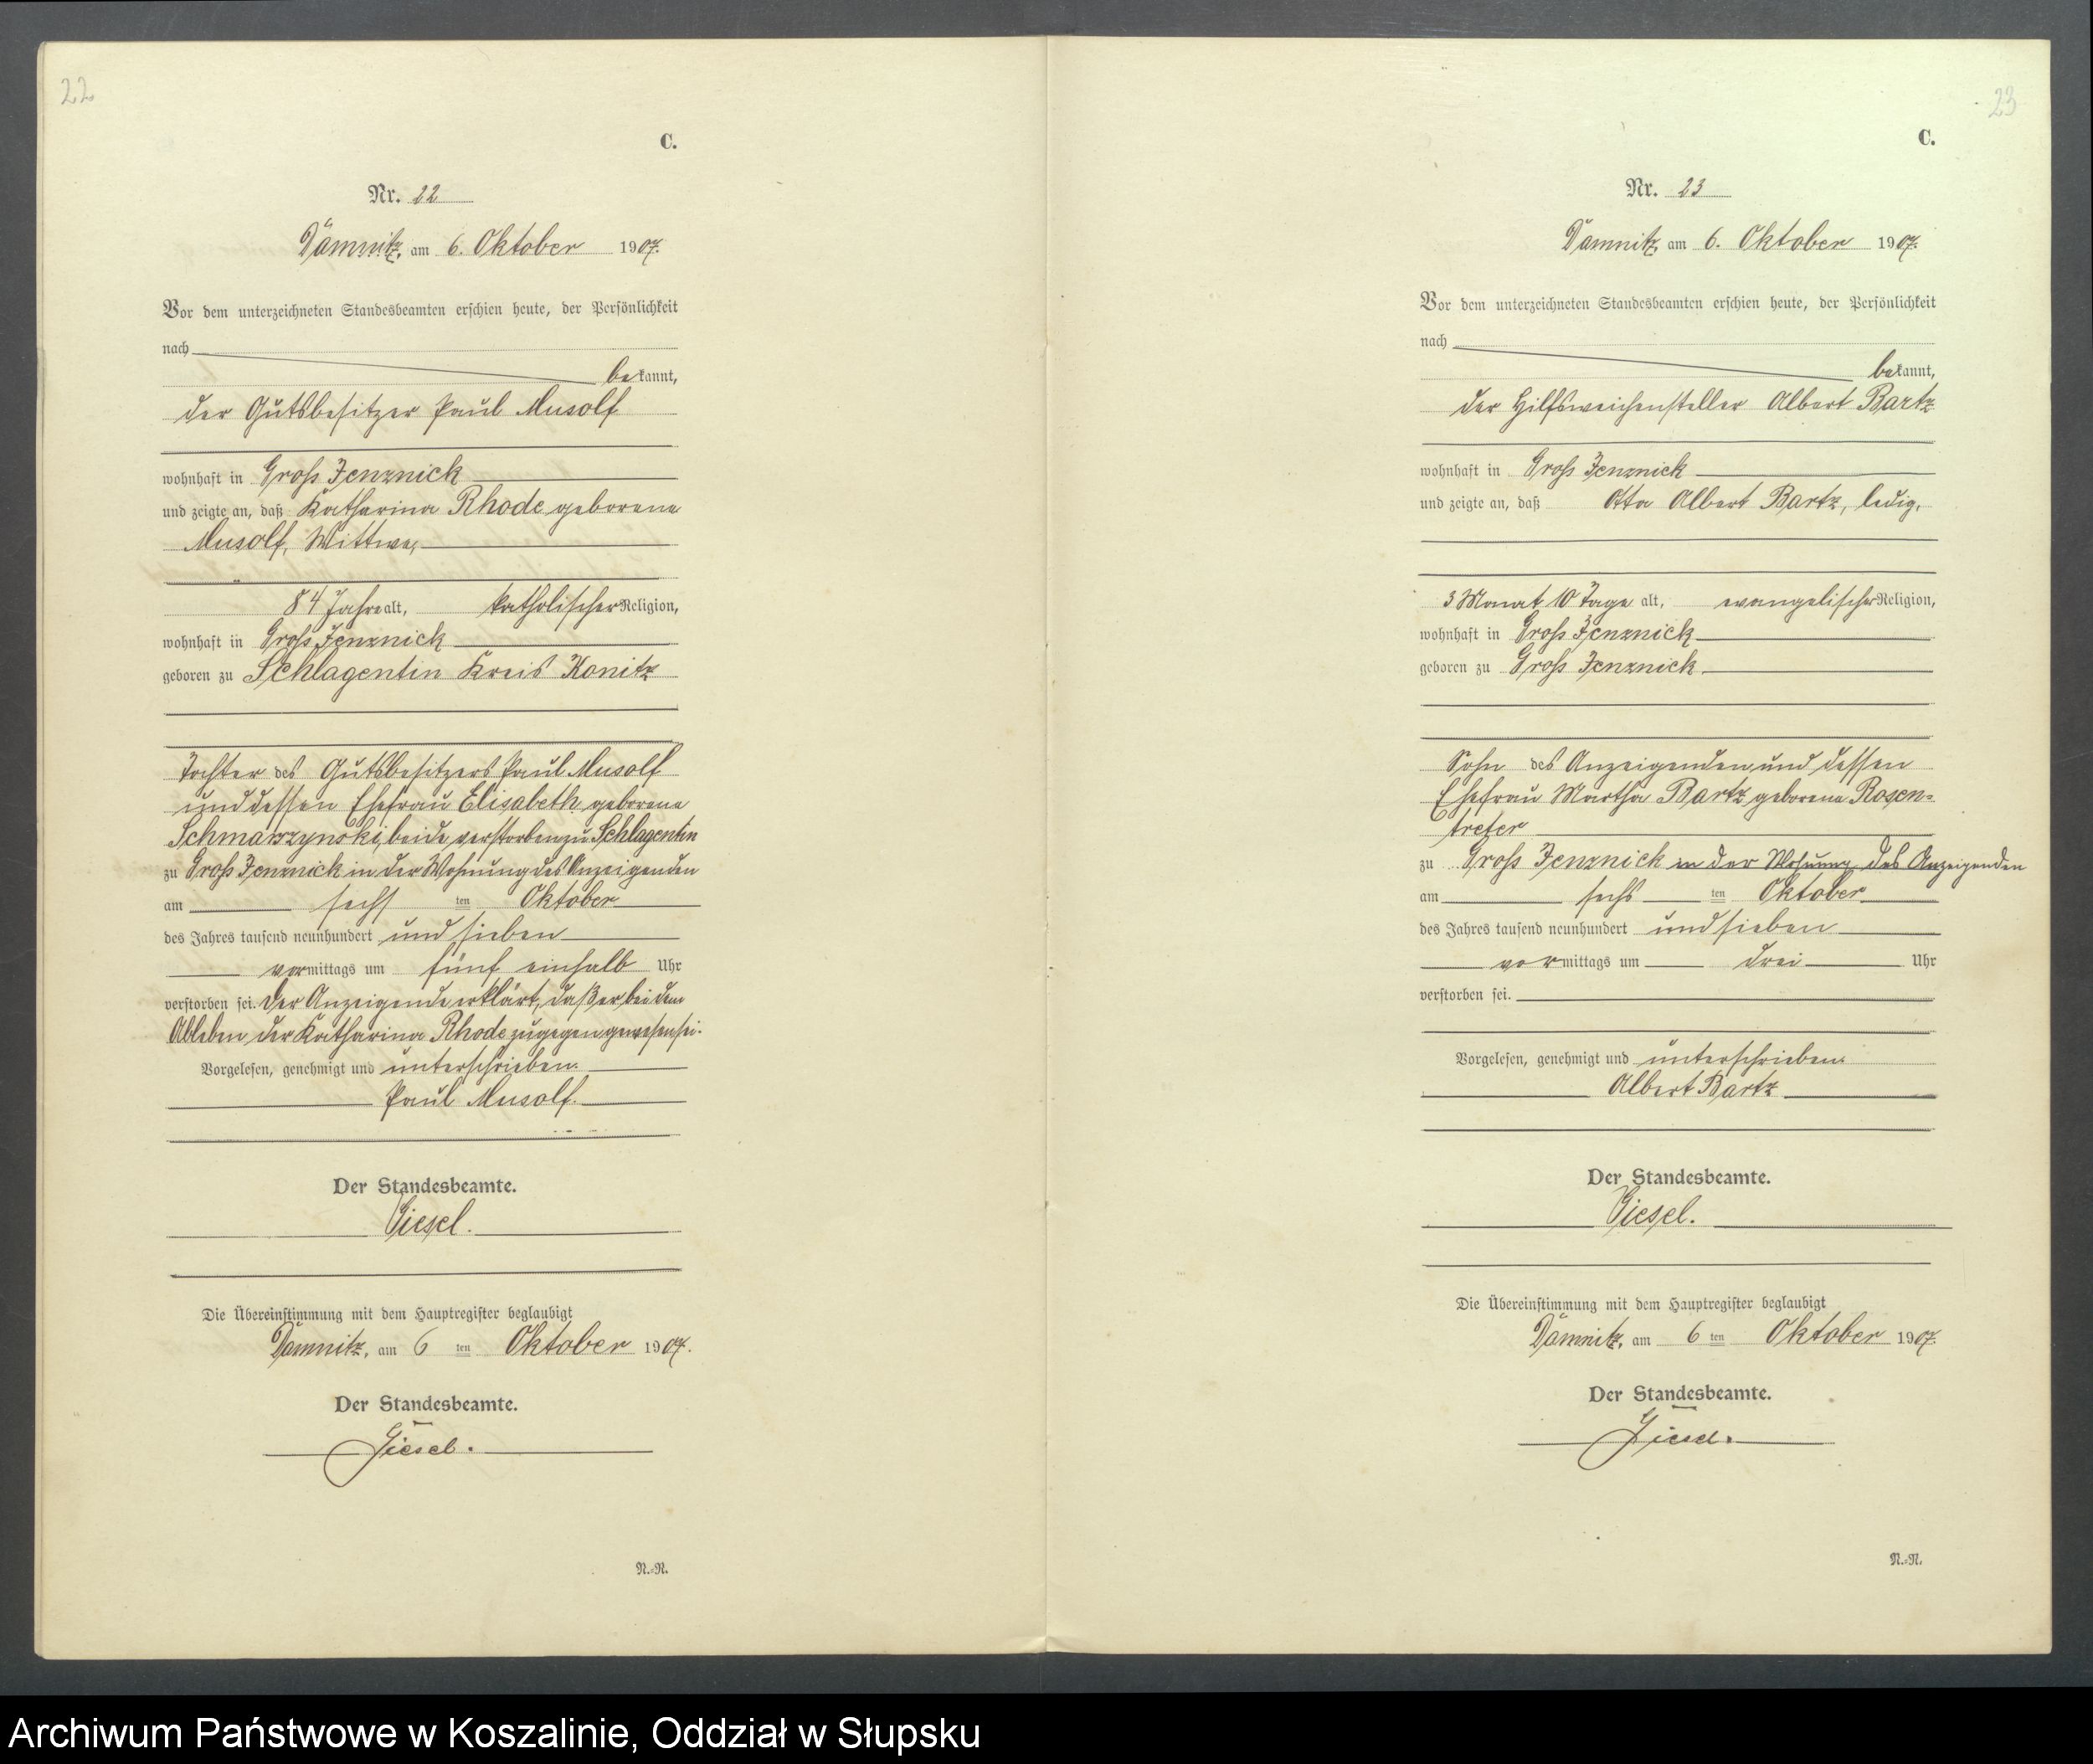 22
C.
Nr. 22
Damnitz, am 6. Oktober 1907.
Vor dem unterzeichneten Standesbeamten erschien heute, der Persönlichkeit
nach
bekannt,
der Gutsbesitzer Paul Musolf
wohnhaft in Groß Jenznick
und zeigte an, daß Katharina Rhode geborene
Musolf, Wittwe,
84 Jahre alt, katholischer Religion,
wohnhaft in Groß Jenznick
geboren zu Schlagentin Kreis Konitz
Tochter des Gutsbesitzers Paul Musolf
und dessen Ehefrau Elisabeth geborene
Schmarzynski, beide verstorben zu Schlagentin
zu Groß Jenznick in der Wohnung des Anzeigenden
am sechs ten Oktober
des Jahres tausend neunhundert und sieben
vormittags um fünf einhalb Uhr
verstorben sei. Der Anzeigende erklärt, daß er bei dem
Ableben der Katharina Rhode zugegen gewesen sei.
Vorgelesen, genehmigt und unterschrieben.
Paul Musolf.
Der Standesbeamte.
Giesel.
Die Übereinstimmung mit dem Hauptregister beglaubigt
Damnitz, am 6 ten Oktober 1907.
Der Standesbeamte.
Giesel.
N.-R.
23
C.
Nr. 23
Damnitz, am 6. Oktober 1907.
Vor dem unterzeichneten Standesbeamten erschien heute, der Persönlichkeit
nach
bekannt,
der Hilfsweichensteller Albert Bartz
wohnhaft in Groß Jenznick
und zeigte an, daß Otto Albert Bartz, ledig,
3 Monat 10 Tage alt, evangelischer Religion,
wohnhaft in Groß Jenznick
geboren zu Groß Jenznick
Sohn des Anzeigenden und dessen
Ehefrau Martha Bartz geborene Rosen-
treter
zu Groß Jenznick in der Wohnung des Anzeigenden
am sechs ten Oktober
des Jahres tausend neunhundert und sieben
vormittags um drei Uhr
verstorben sei.
Vorgelesen, genehmigt und unterschrieben.
Albert Bartz
Der Standesbeamte.
Giesel.
Die Übereinstimmung mit dem Hauptregister beglaubigt
Damnitz, am 6 ten Oktober 1907.
Der Standesbeamte.
Giesel.
N.-R.
Archiwum Państwowe w Koszalinie, Oddział w Słupsku